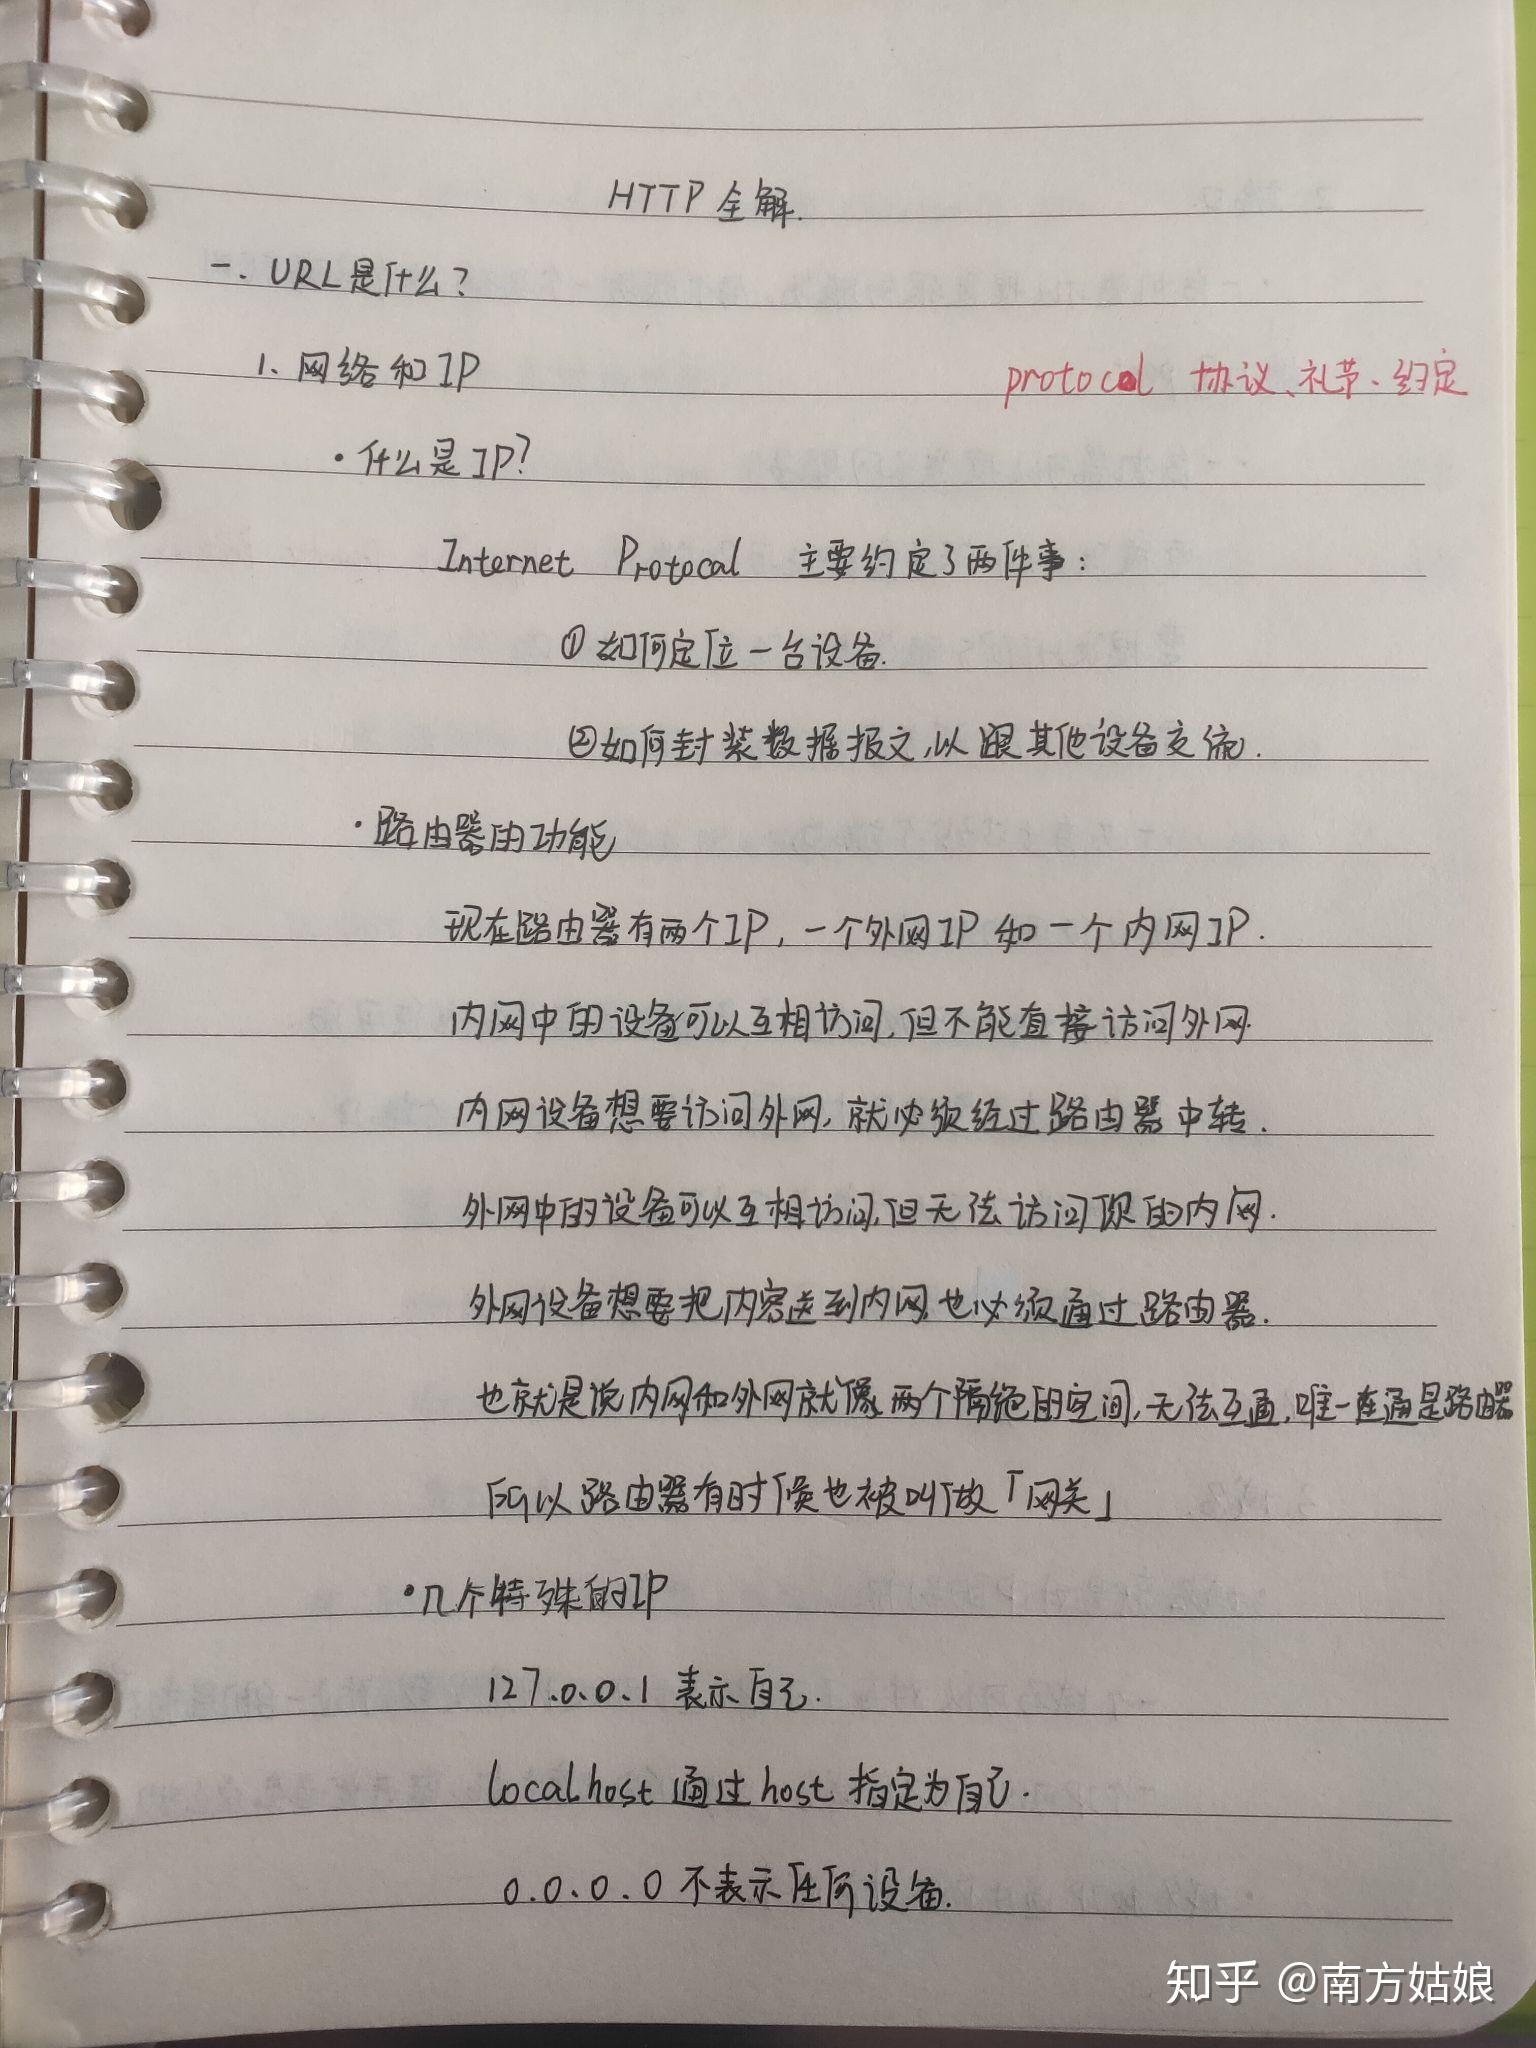 HTTP 全解.
一. URL是什么?
1. 网络和IP
protocol 协议、礼节、约定
·什么是IP?
Internet Protocal 主要约定了两件事:
①如何定位一台设备.
②如何封装数据报文,以跟其他设备交流.
·路由器的功能
现在路由器有两个IP,一个外网IP和一个内网IP.
内网中的设备可以互相访问,但不能直接访问外网.
内网设备想要访问外网,就必须经过路由器中转.
外网中的设备可以互相访问,但无法访问你的内网.
外网设备想要把内容送到内网,也必须通过路由器.
也就是说内网和外网就像两个隔绝的空间,无法互通,唯一连通是路由器
所以路由器有时候也被叫做「网关」
·几个特殊的IP
127.0.0.1 表示自己.
localhost 通过host 指定为自己.
0.0.0.0 不表示任何设备.
知乎 @南方姑娘